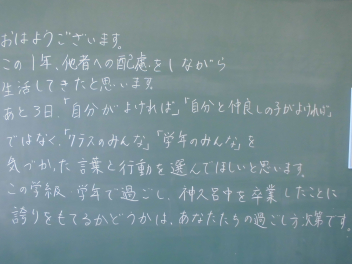 おはようございます。
この1年、他者への配慮をしながら
生活してきたと思います。
あと3日、「自分がよければ」「自分と仲良しの子がよければ」
ではなく、「クラスのみんな」「学年のみんな」を
気づかった言葉と行動を選んでほしいと思います。
この学級、学年で過ごし、神久呂中を卒業したことに
誇りをもてるかどうかは、あなたたちの過ごし方次第です。